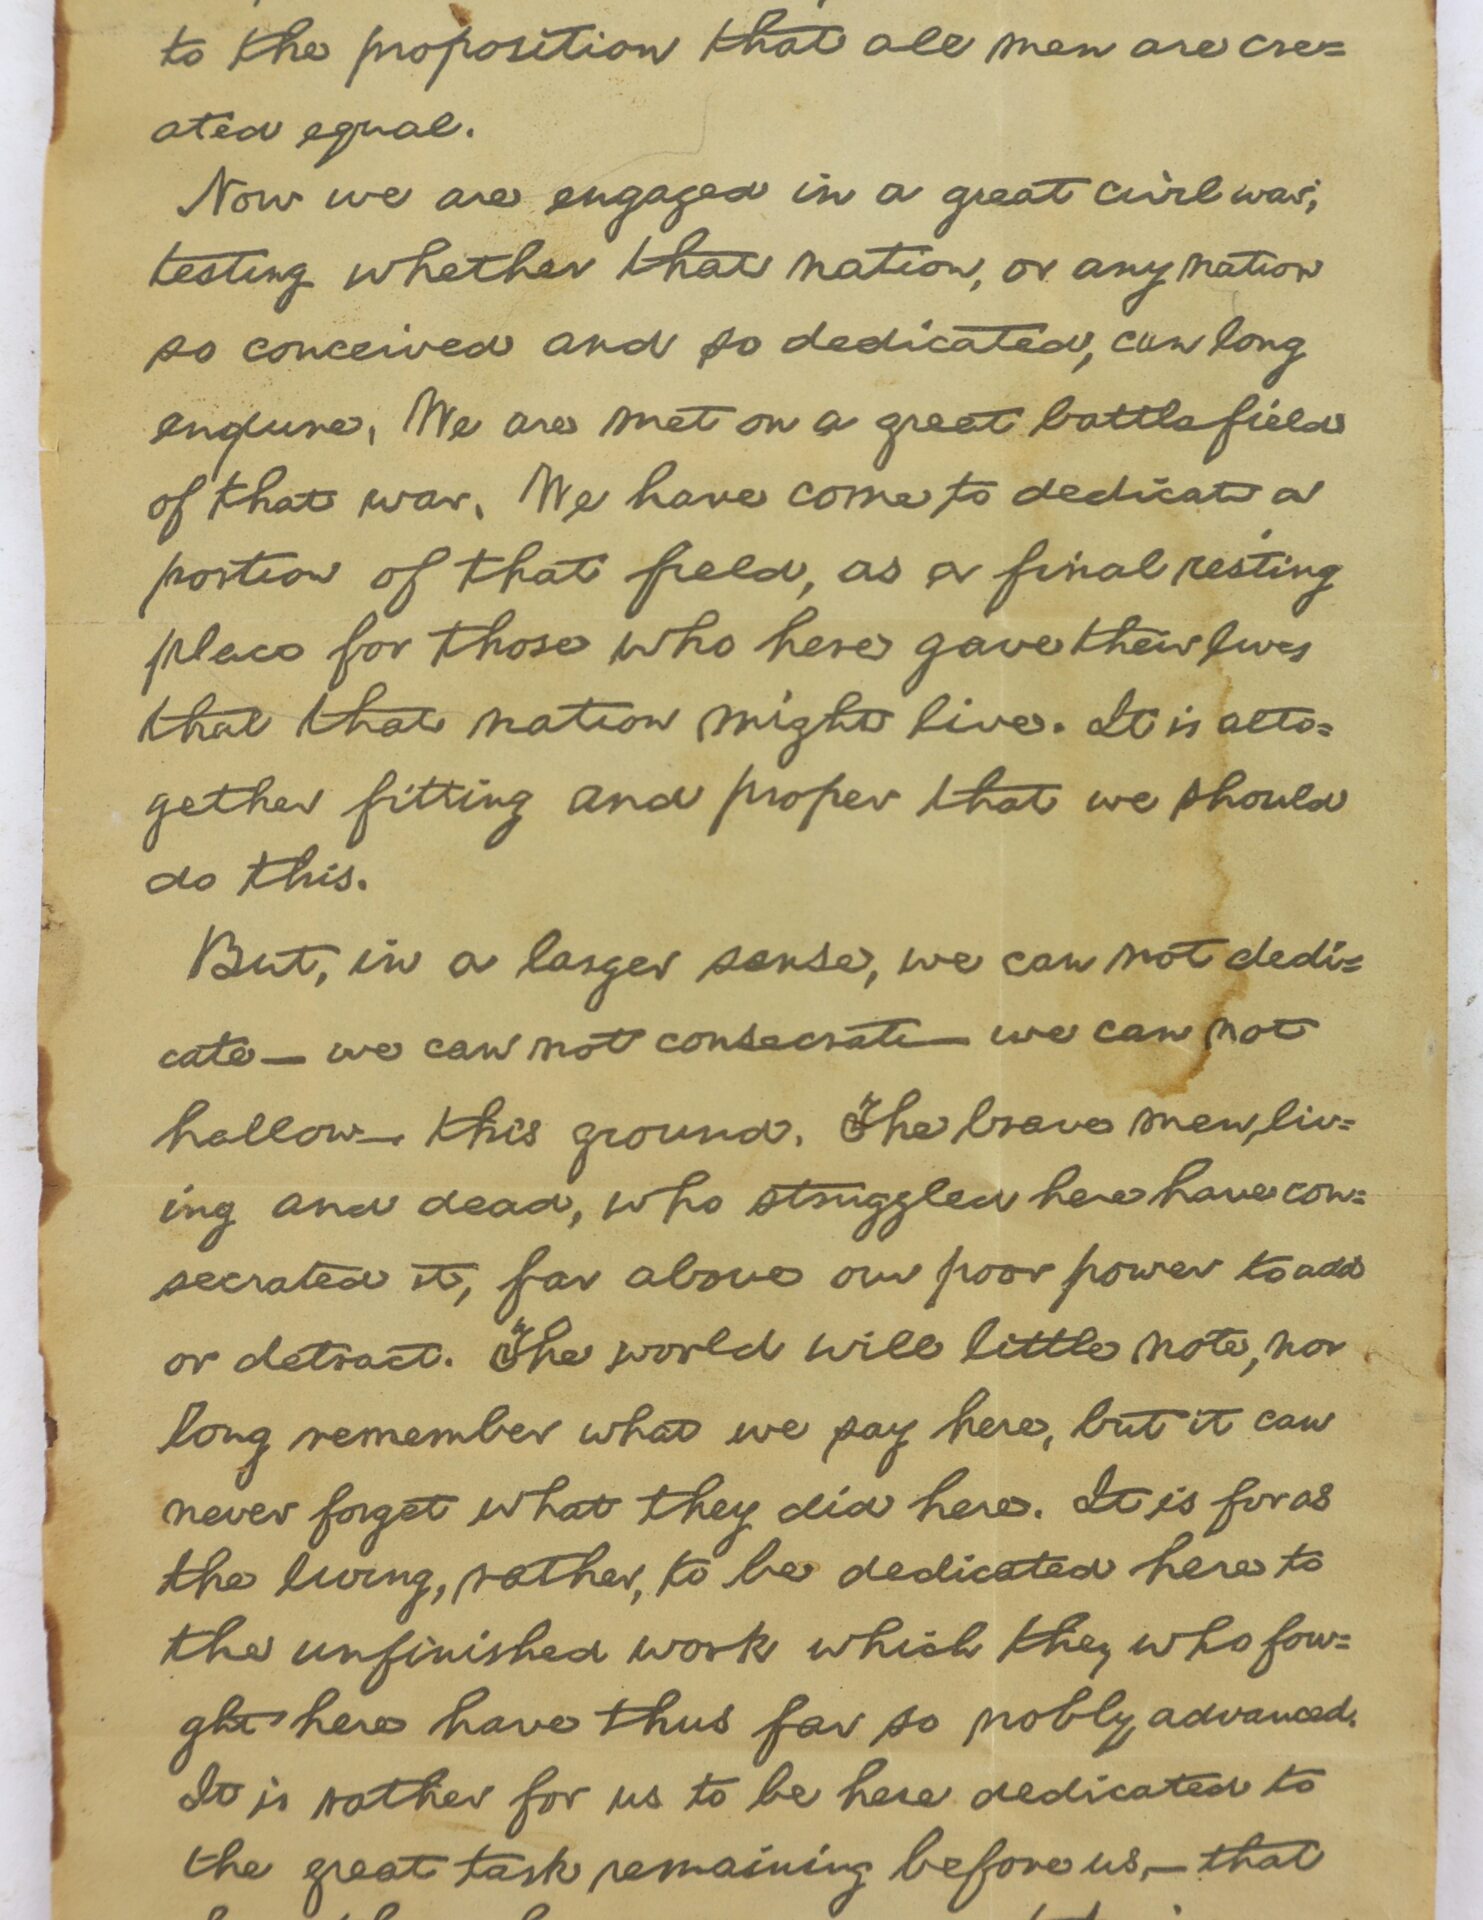 to the proposition that all men are cre=
ated equal.
Now we are engaged in a great civil war,
testing whether that nation, or any nation
so conceived and so dedicated, can long
endure. We are met on a great battlefield
of that war. We have come to dedicate a
portion of that field, as a final resting
place for those who here gave their lives
that that nation might live. It is alto=
gether fitting and proper that we should
do this.
But, in a larger sense, we can not dedi=
cate— we can not consecrate— we can not
hallow— this ground. The brave men, liv=
ing and dead, who struggled here have con=
secrated it, far above our poor power to add
or detract. The world will little note, nor
long remember what we say here, but it can
never forget what they did here. It is for us
the living, rather, to be dedicated here to
the unfinished work which they who fou=
ght here have thus far so nobly advanced.
It is rather for us to be here dedicated to
the great task remaining before us,— that